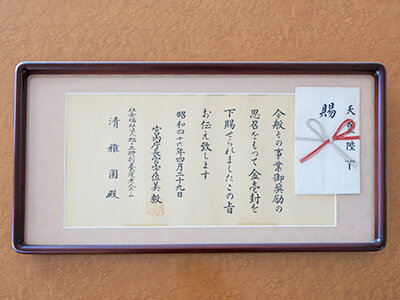 天皇陛下
賜
今般その事業御奨励の
思召をもって金壱封を
下賜せられましたこの旨
お伝え致します
昭和四十六年四月二十九日
宮内庁長官宇佐美毅
清雅園殿